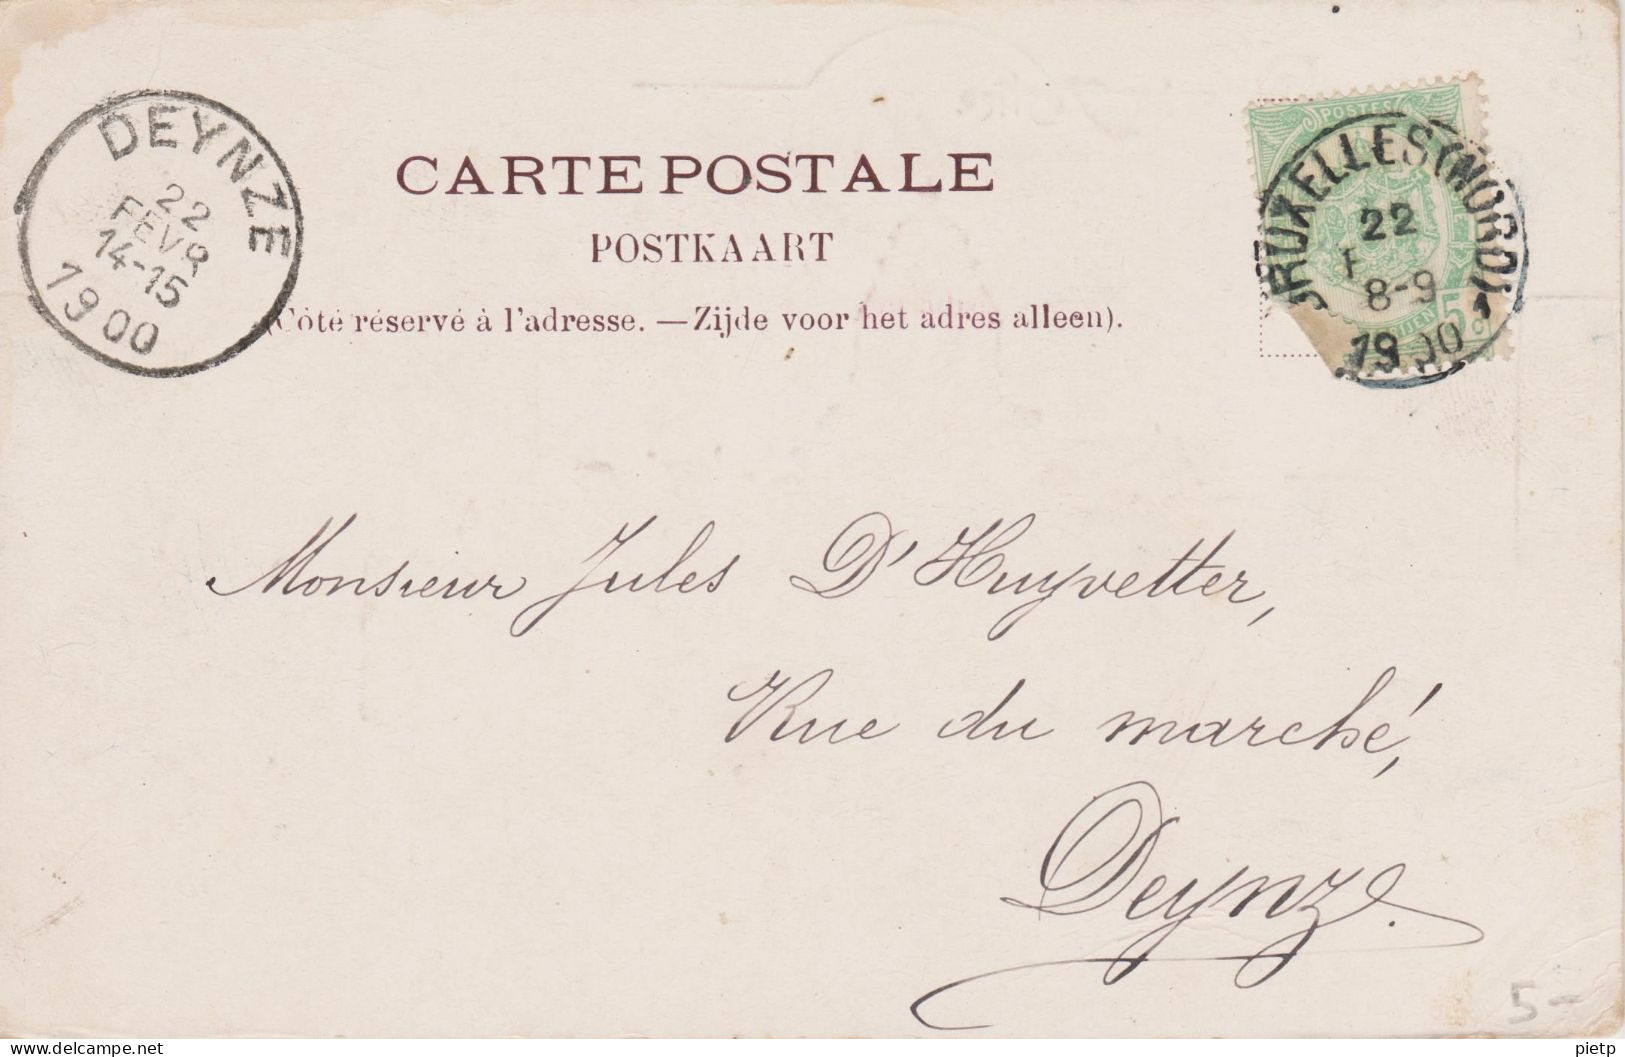 DEYNZE
22
FEVR
14-15
1900
CARTE POSTALE
POSTKAART
(Côté réservé à l'adresse. — Zijde voor het adres alleen).
POSTES
BRUXELLES (NORD)
22
F
8-9
1900
5 c
Monsieur Jules D'Huyvetter,
Rue du marché,
Deynze.
5-
pietp